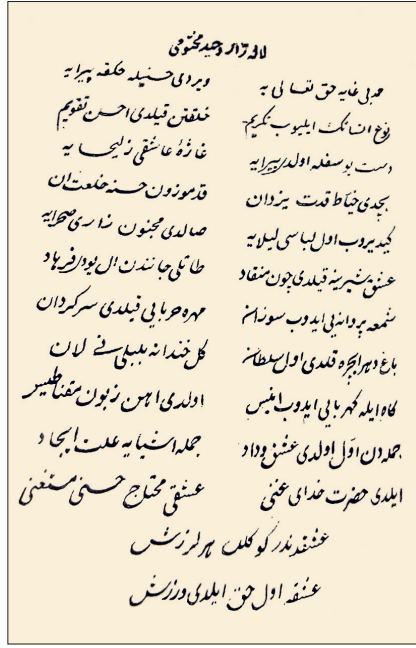 لاله زار وحید مختومی
حمد بی غایه حق تعالی یه ویردی حسنیله حلقه پیرایه
نوع انسانك ایلیوب تکریم خلقتن قیلدی احسن تقویم
دست یوسفله اولدر پیرایه غازهٔ عاشقی زلیخا یه
بچدی خیاط قدرت یزدان قد موزون حسنه خلعت ان
کیدیروب اول لباسی لیلایه صالدی مجنون زاری صحرایه
عشق شیرینه قیلدی چون منقاد طاتلی جانندن ال یودر فرهاد
شمعه پروانه یی ایدوب سوزان مهره حربایی قیلدی سرکردان
باغ دهر ایچره قلدی اول سلطان کل خندانه بلبلی نالان
کاه ایله کهربایی ایدوب انیس اولدی اهن زبون مقناطیس
جمله دن اول اولدی عشق وداد جمله اشیایه علت ایجاد
ایلدی حضرت خدای غنی عشقی محتاج حسنی مستغنی
عشقدندر کوکلده هر لرزش
عشقه اول حق ایلدی ورزش